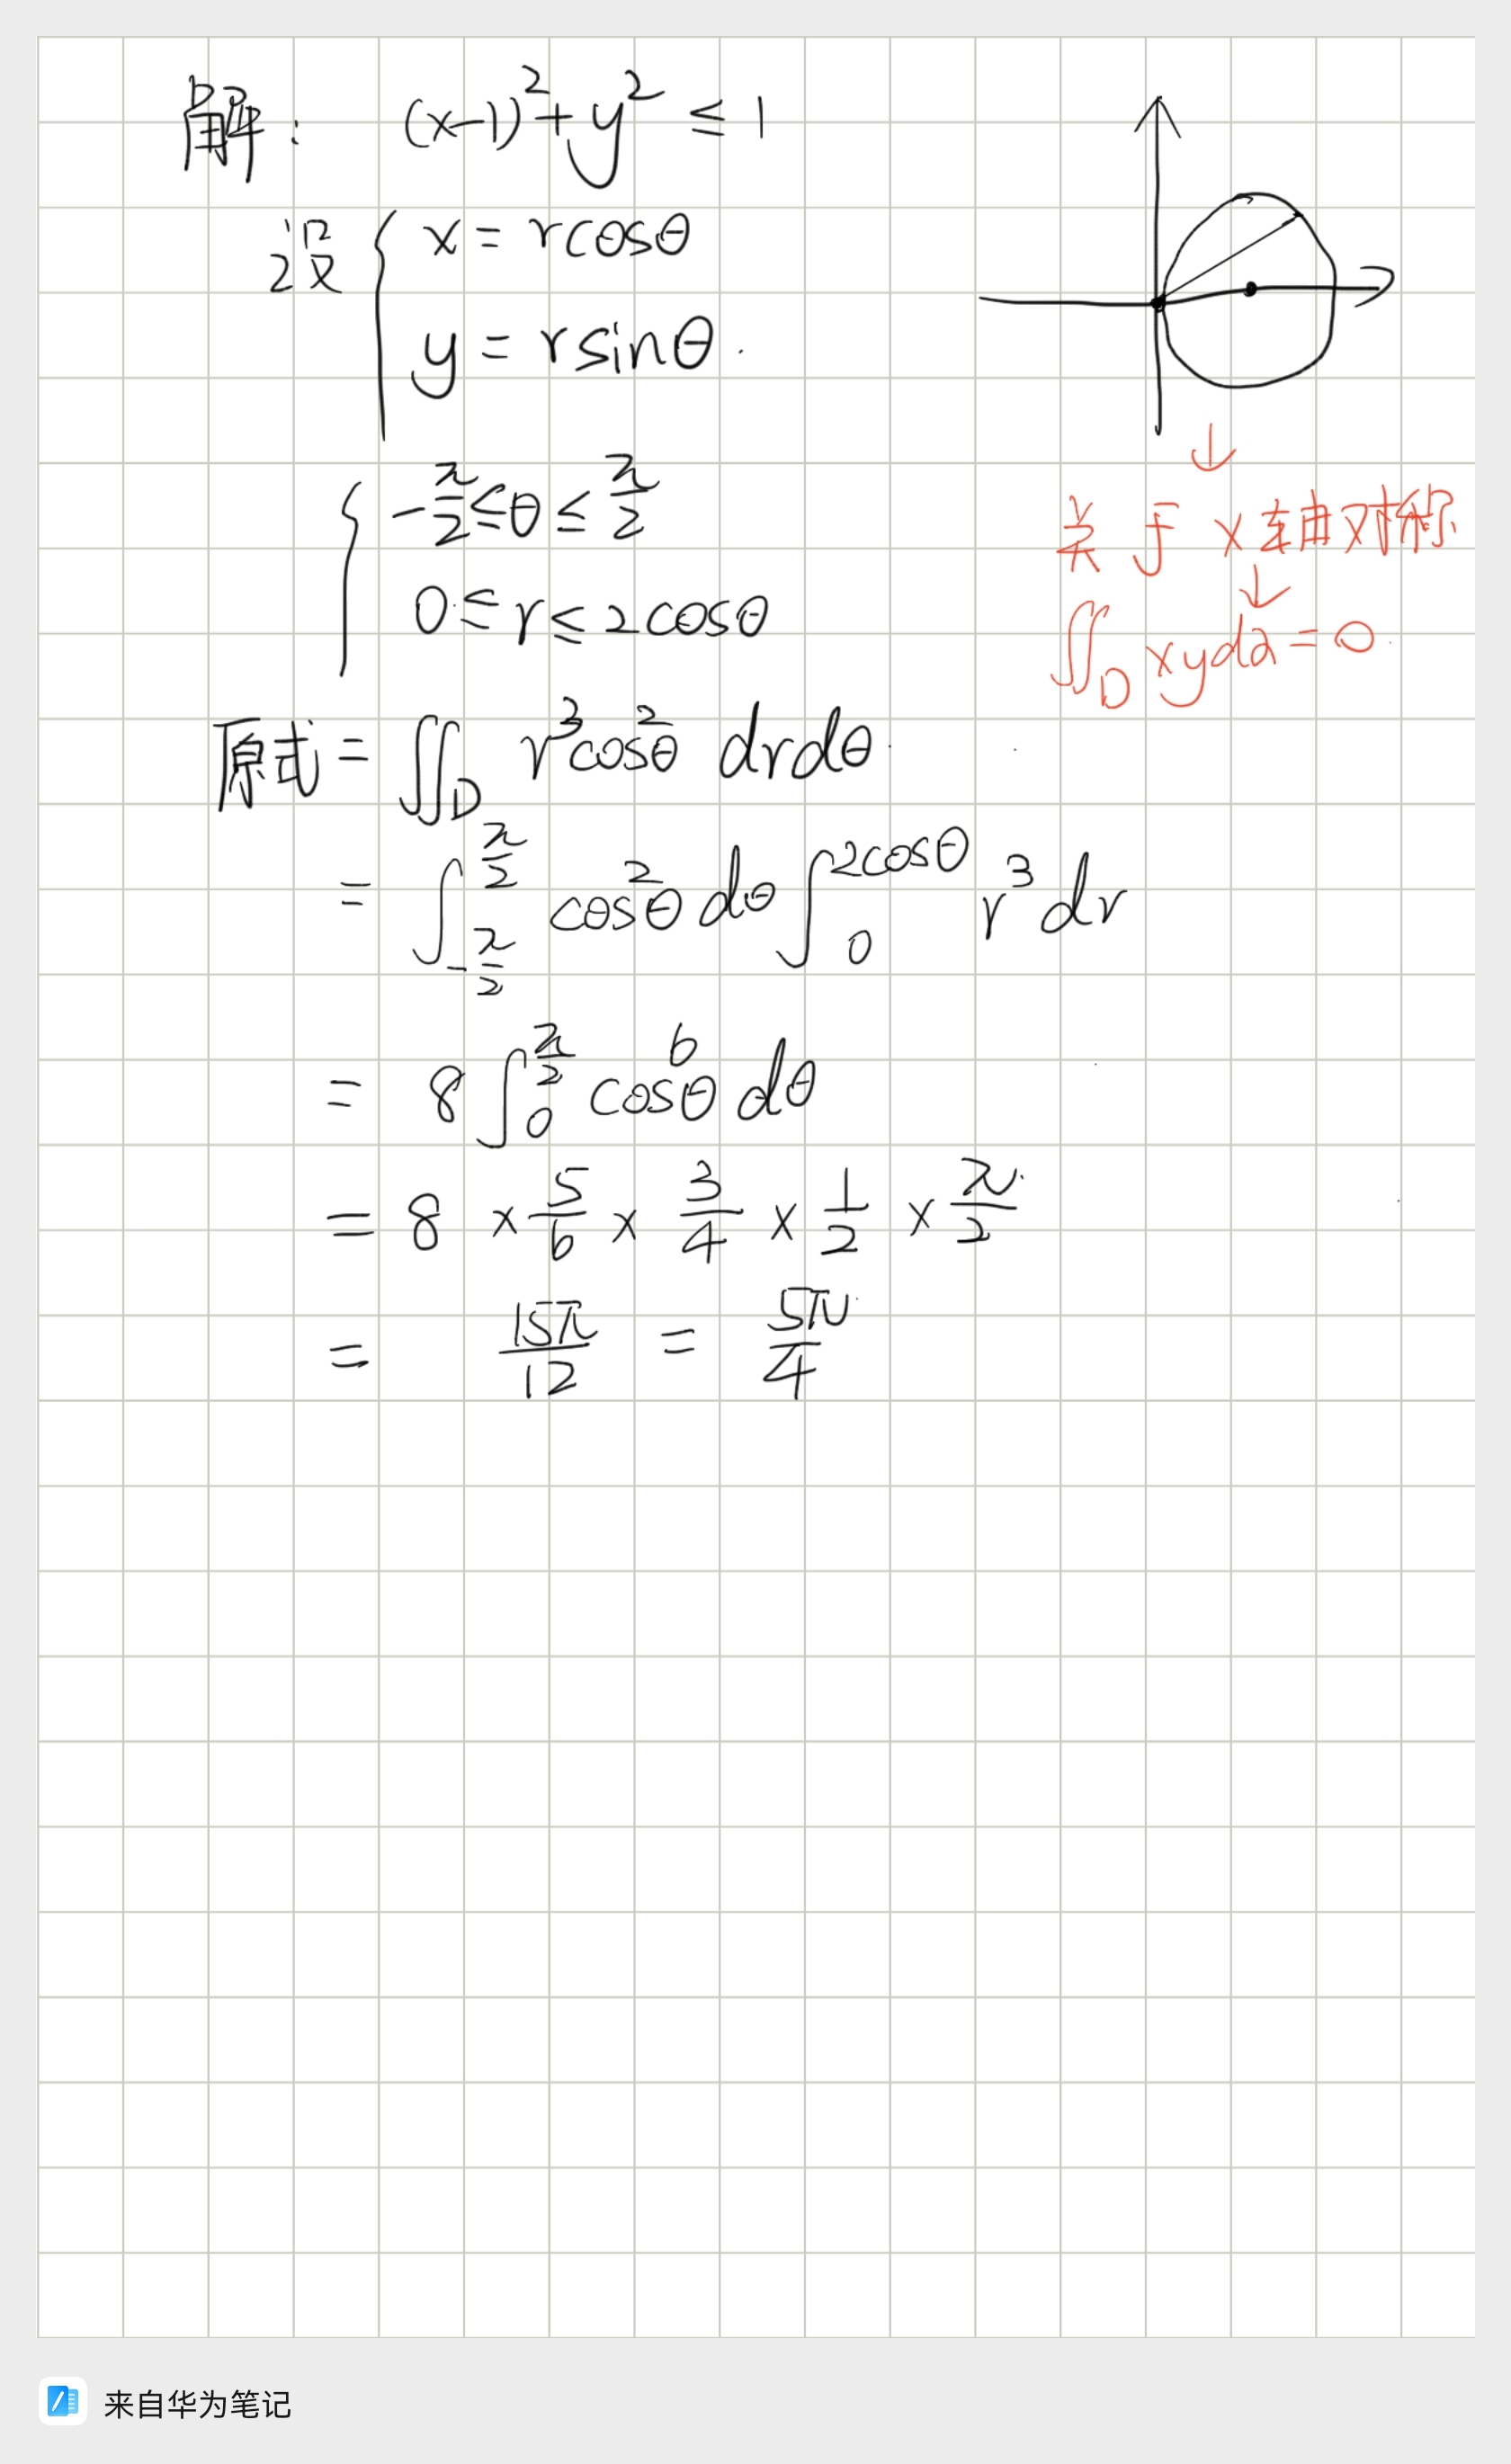 解: (x-1)²+y² ≤ 1
设 { x = rcosθ
y = rsinθ.
{ -π/2 ≤ θ ≤ π/2
0 ≤ r ≤ 2cosθ
↓
关于x轴对称
↓
∬_D xyd∂ = 0
原式 = ∬_D r³cos²θ drdθ
= ∫_{-π/2}^{π/2} cos²θ dθ ∫_0^{2cosθ} r³dr
= 8∫_0^{π/2} cos⁶θ dθ
= 8 × 5/6 × 3/4 × 1/2 × π/2
= 15π/12 = 5π/4
来自华为笔记